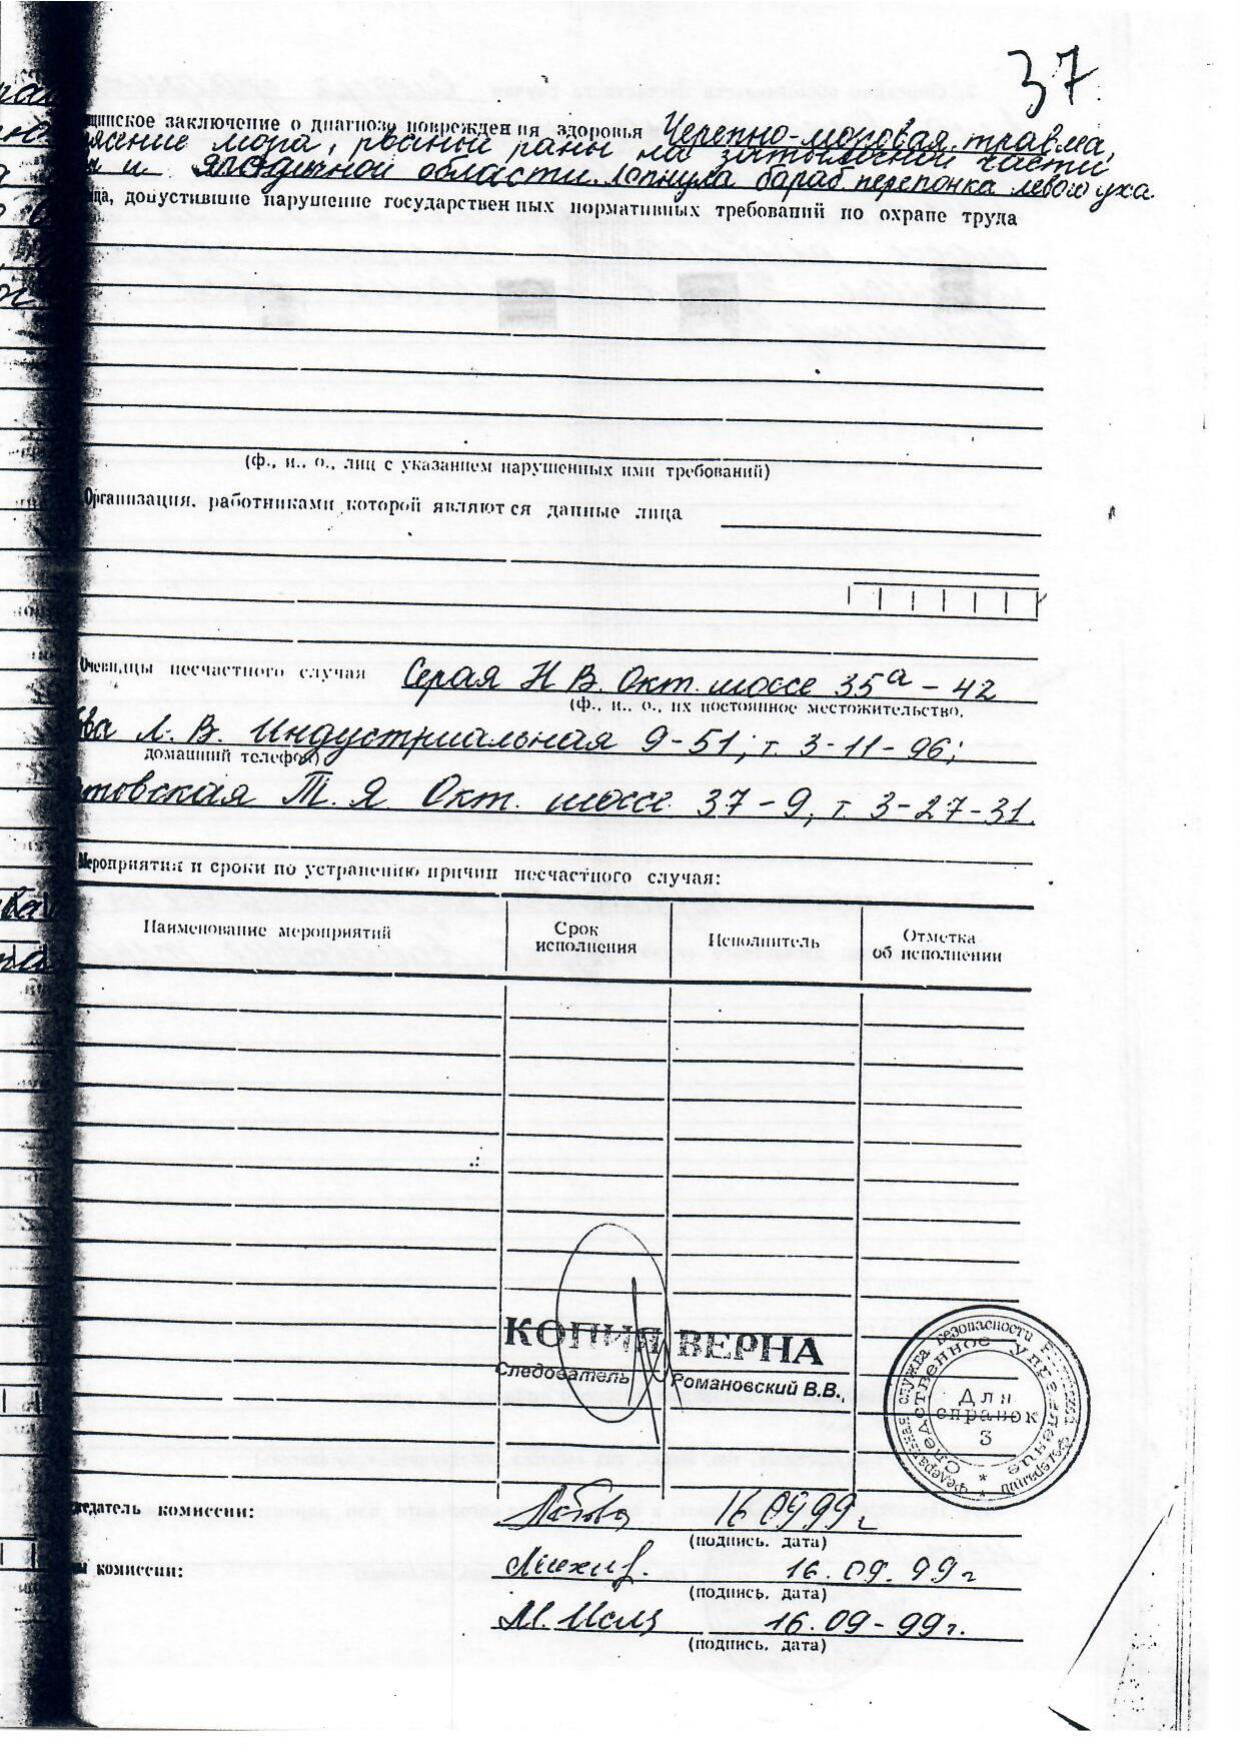 37
заключение о диагнозе повреждения здоровья Черепно-мозговая травма,
мозга, рваной раны на затылочной части
и ягодичной области. Лопнула бараб перепонка левого уха.
допустившие нарушение государственных нормативных требований по охране труда
(ф., и., о., лиц с указанием нарушенных ими требований)
Организация, работниками которой являются данные лица
Очевидцы несчастного случая Серая Н В. Окт. шоссе 35а - 42
(ф., и., о., их постоянное местожительство,
Л. В. Индустриальная 9-51; т. 3-11-96;
домашний телефон)
Т. Я Окт. шоссе 37-9, т. 3-27-31.
Мероприятия и сроки по устранению причин несчастного случая:
Наименование мероприятий
Срок исполнения
Исполнитель
Отметка об исполнении
КОПИЯ ВЕРНА
Следователь Романовский В.В.
Федеральная служба безопасности Российской Федерации
Следственное управление
Для справок
3
комиссии: 16 09 99 г
(подпись, дата)
комиссии: 16. 09. 99 г
(подпись, дата)
16. 09 - 99 г.
(подпись, дата)